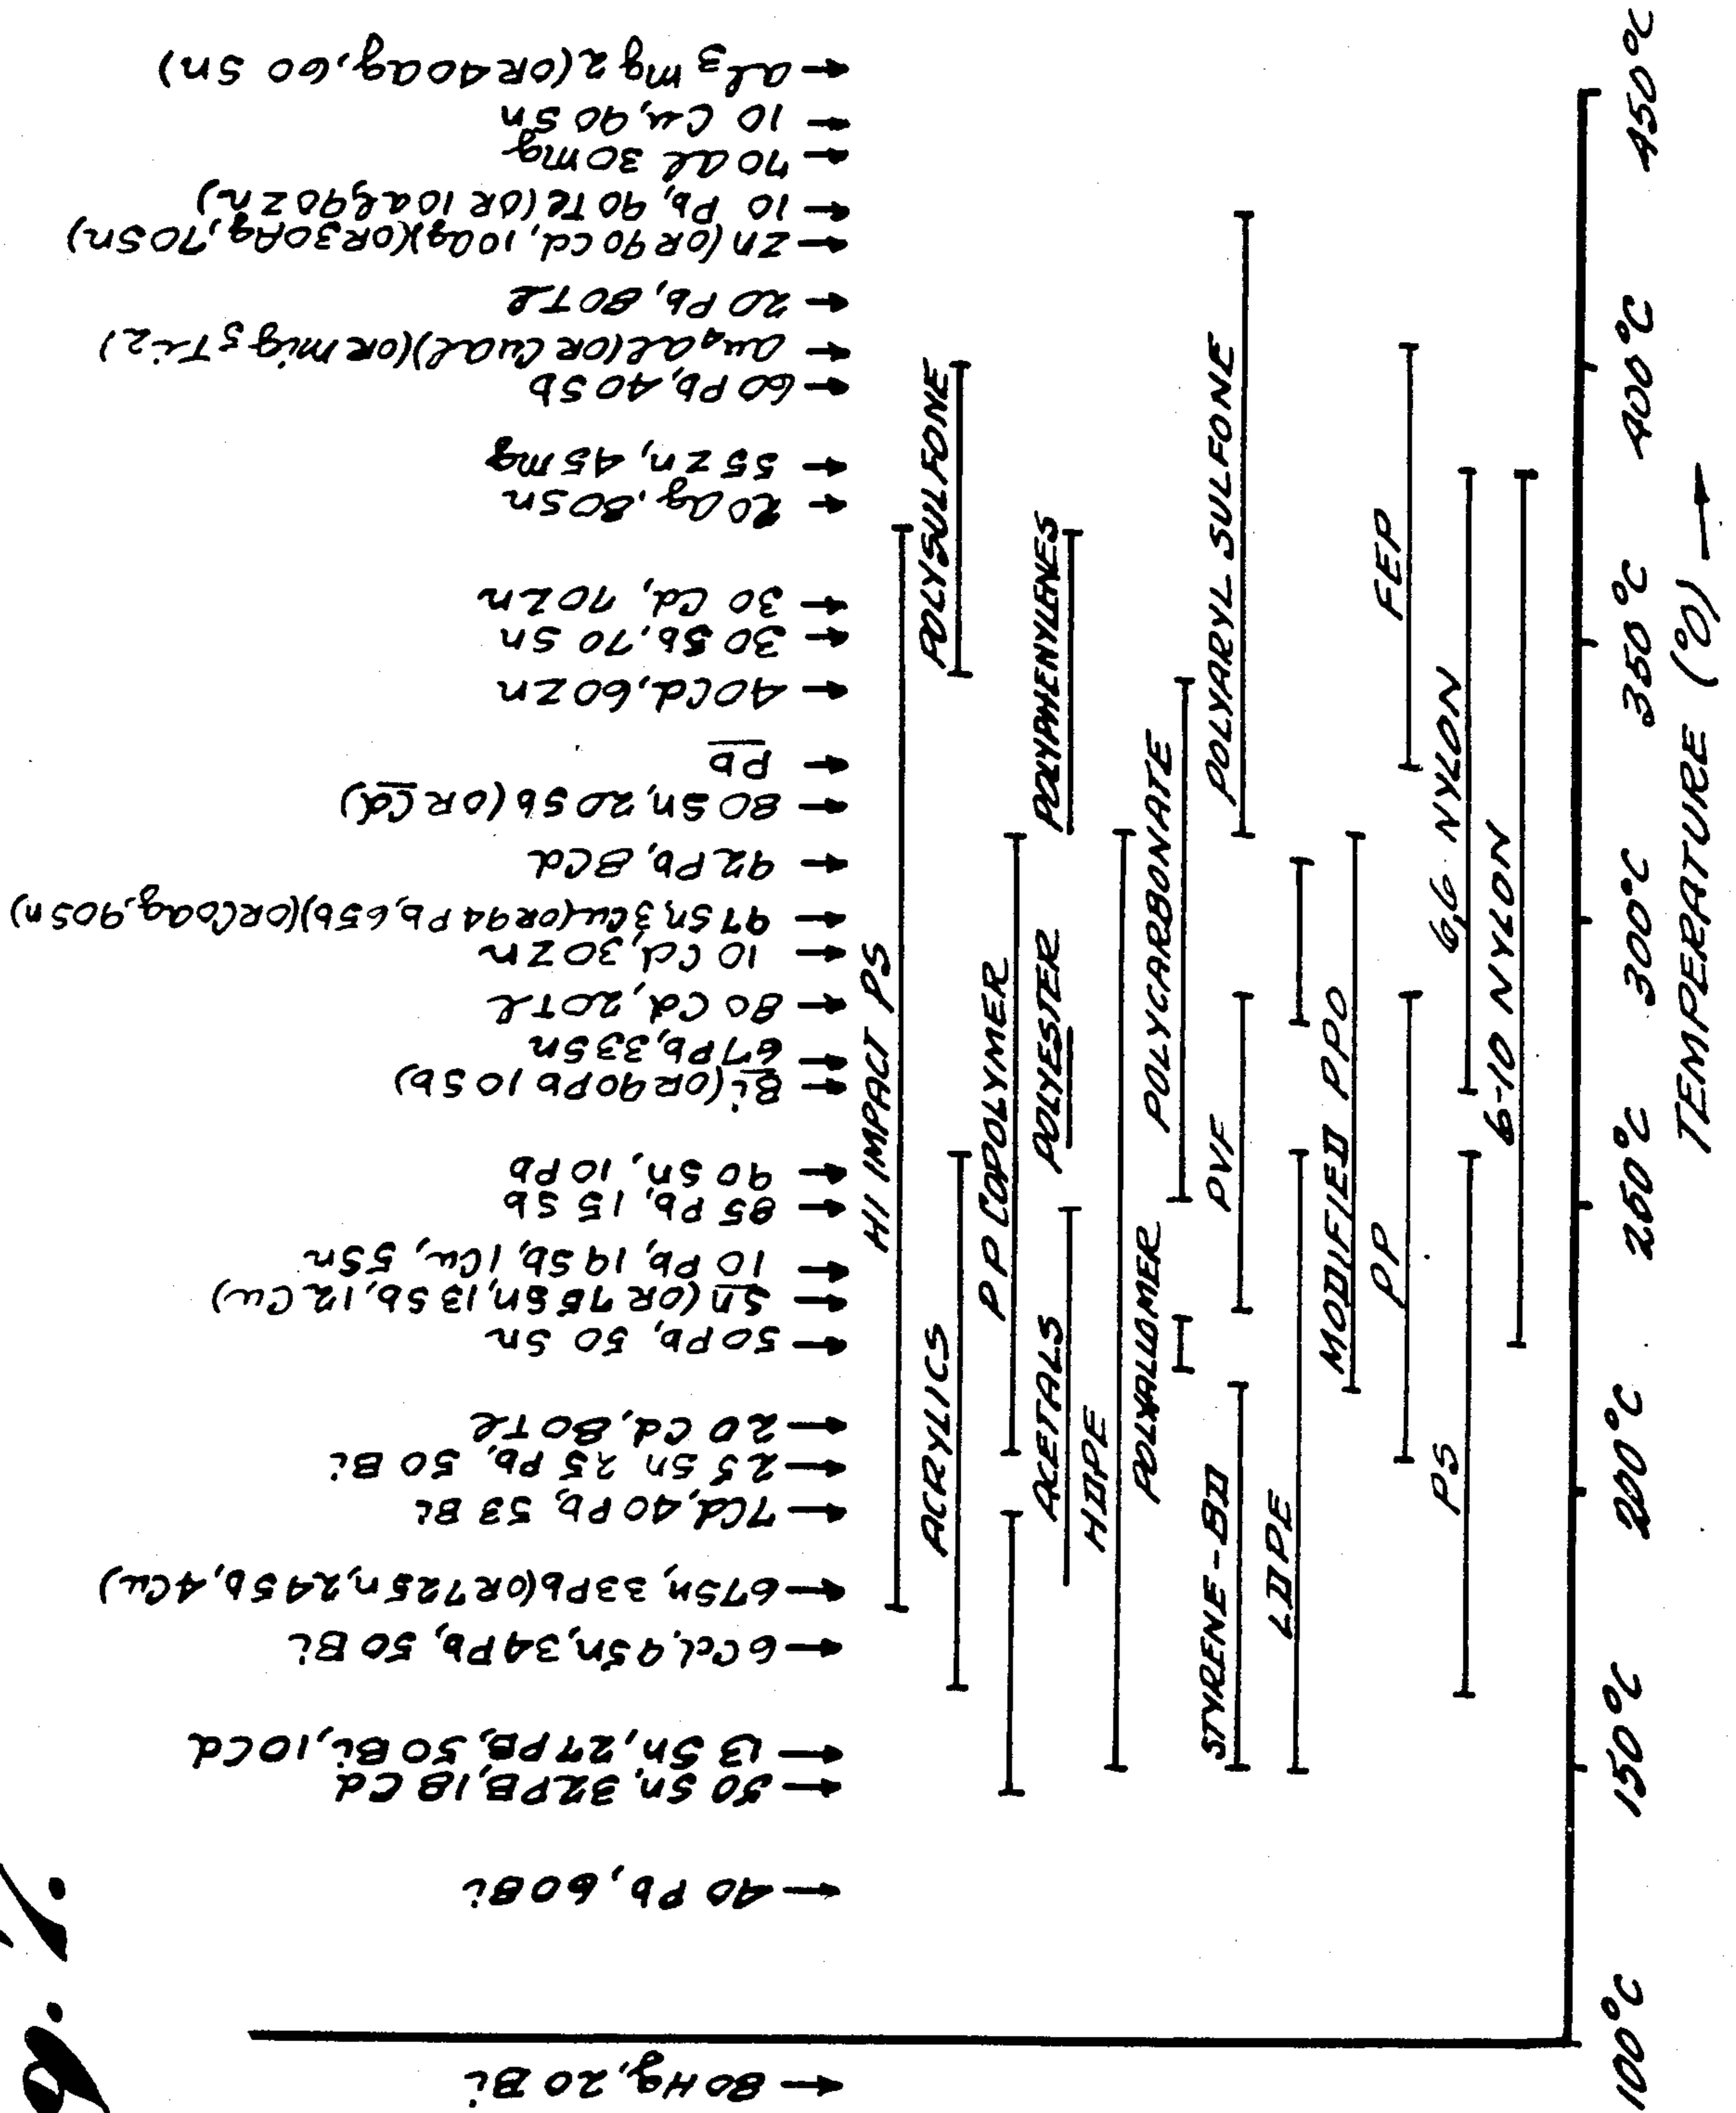 80 Hg, 20 Bi
40 Pb, 60 Bi
50 Sn, 32 PB, 18 Cd
13 Sn, 27 PB, 50 Bi, 10 Cd
6 Cd, 9 Sn, 34 Pb, 50 Bi
67 Sn, 33 Pb (OR 72 Sn, 24 Sb, 4 Cu)
7 Cd, 40 Pb, 53 Bi
25 Sn, 25 Pb, 50 Bi
20 Cd, 80 Tl
50 Pb, 50 Sn
Sn (OR 75 Sn, 13 Sb, 12 Cu)
10 Pb, 19 Sb, 1 Cu, 5 Sn
85 Pb, 15 Sb
90 Sn, 10 Pb
Bi (OR 90 Pb 10 Sb)
67 Pb, 33 Sn
80 Cd, 20 Tl
10 Cd, 30 Zn
97 Sn, 3 Cu (OR 94 Pb, 6 Sb) (OR 60 ag, 90 Sn)
92 Pb, 8 Cd
80 Sn, 20 Sb (OR Cd)
Pb
40 Cd, 60 Zn
30 Sb, 70 Sn
30 Cd, 70 Zn
20 ag, 80 Sn
55 Zn, 45 mg
60 Pb, 40 Sb
au4 al (OR Cu al) (OR mig5 Ti2)
20 Pb, 80 Tl
Zn (OR 90 Cd, 10 ag) (OR 30 Ag, 70 Sn)
10 Pb, 90 Te (OR 10 al 90 Zn)
70 al 30 mg
10 Cu, 90 Sn
al3 mg2 (OR 40 ag, 60 Sn)
HI IMPACT PS
ACRYLICS
POLYSULFONE
PP COPOLYMER
ACETALS
POLYESTER
POLYPHENYLENES
HDPE
POLYALLOMER
POLYCARBONATE
STYRENE-BD
PVF
POLYARYL SULFONE
LDPE
MODIFIED PPO
PP
FEP
PS
6,6 NYLON
6-10 NYLON
100°C 150°C 200°C 250°C 300°C 350°C 400°C 450°C
TEMPERATURE (°C)